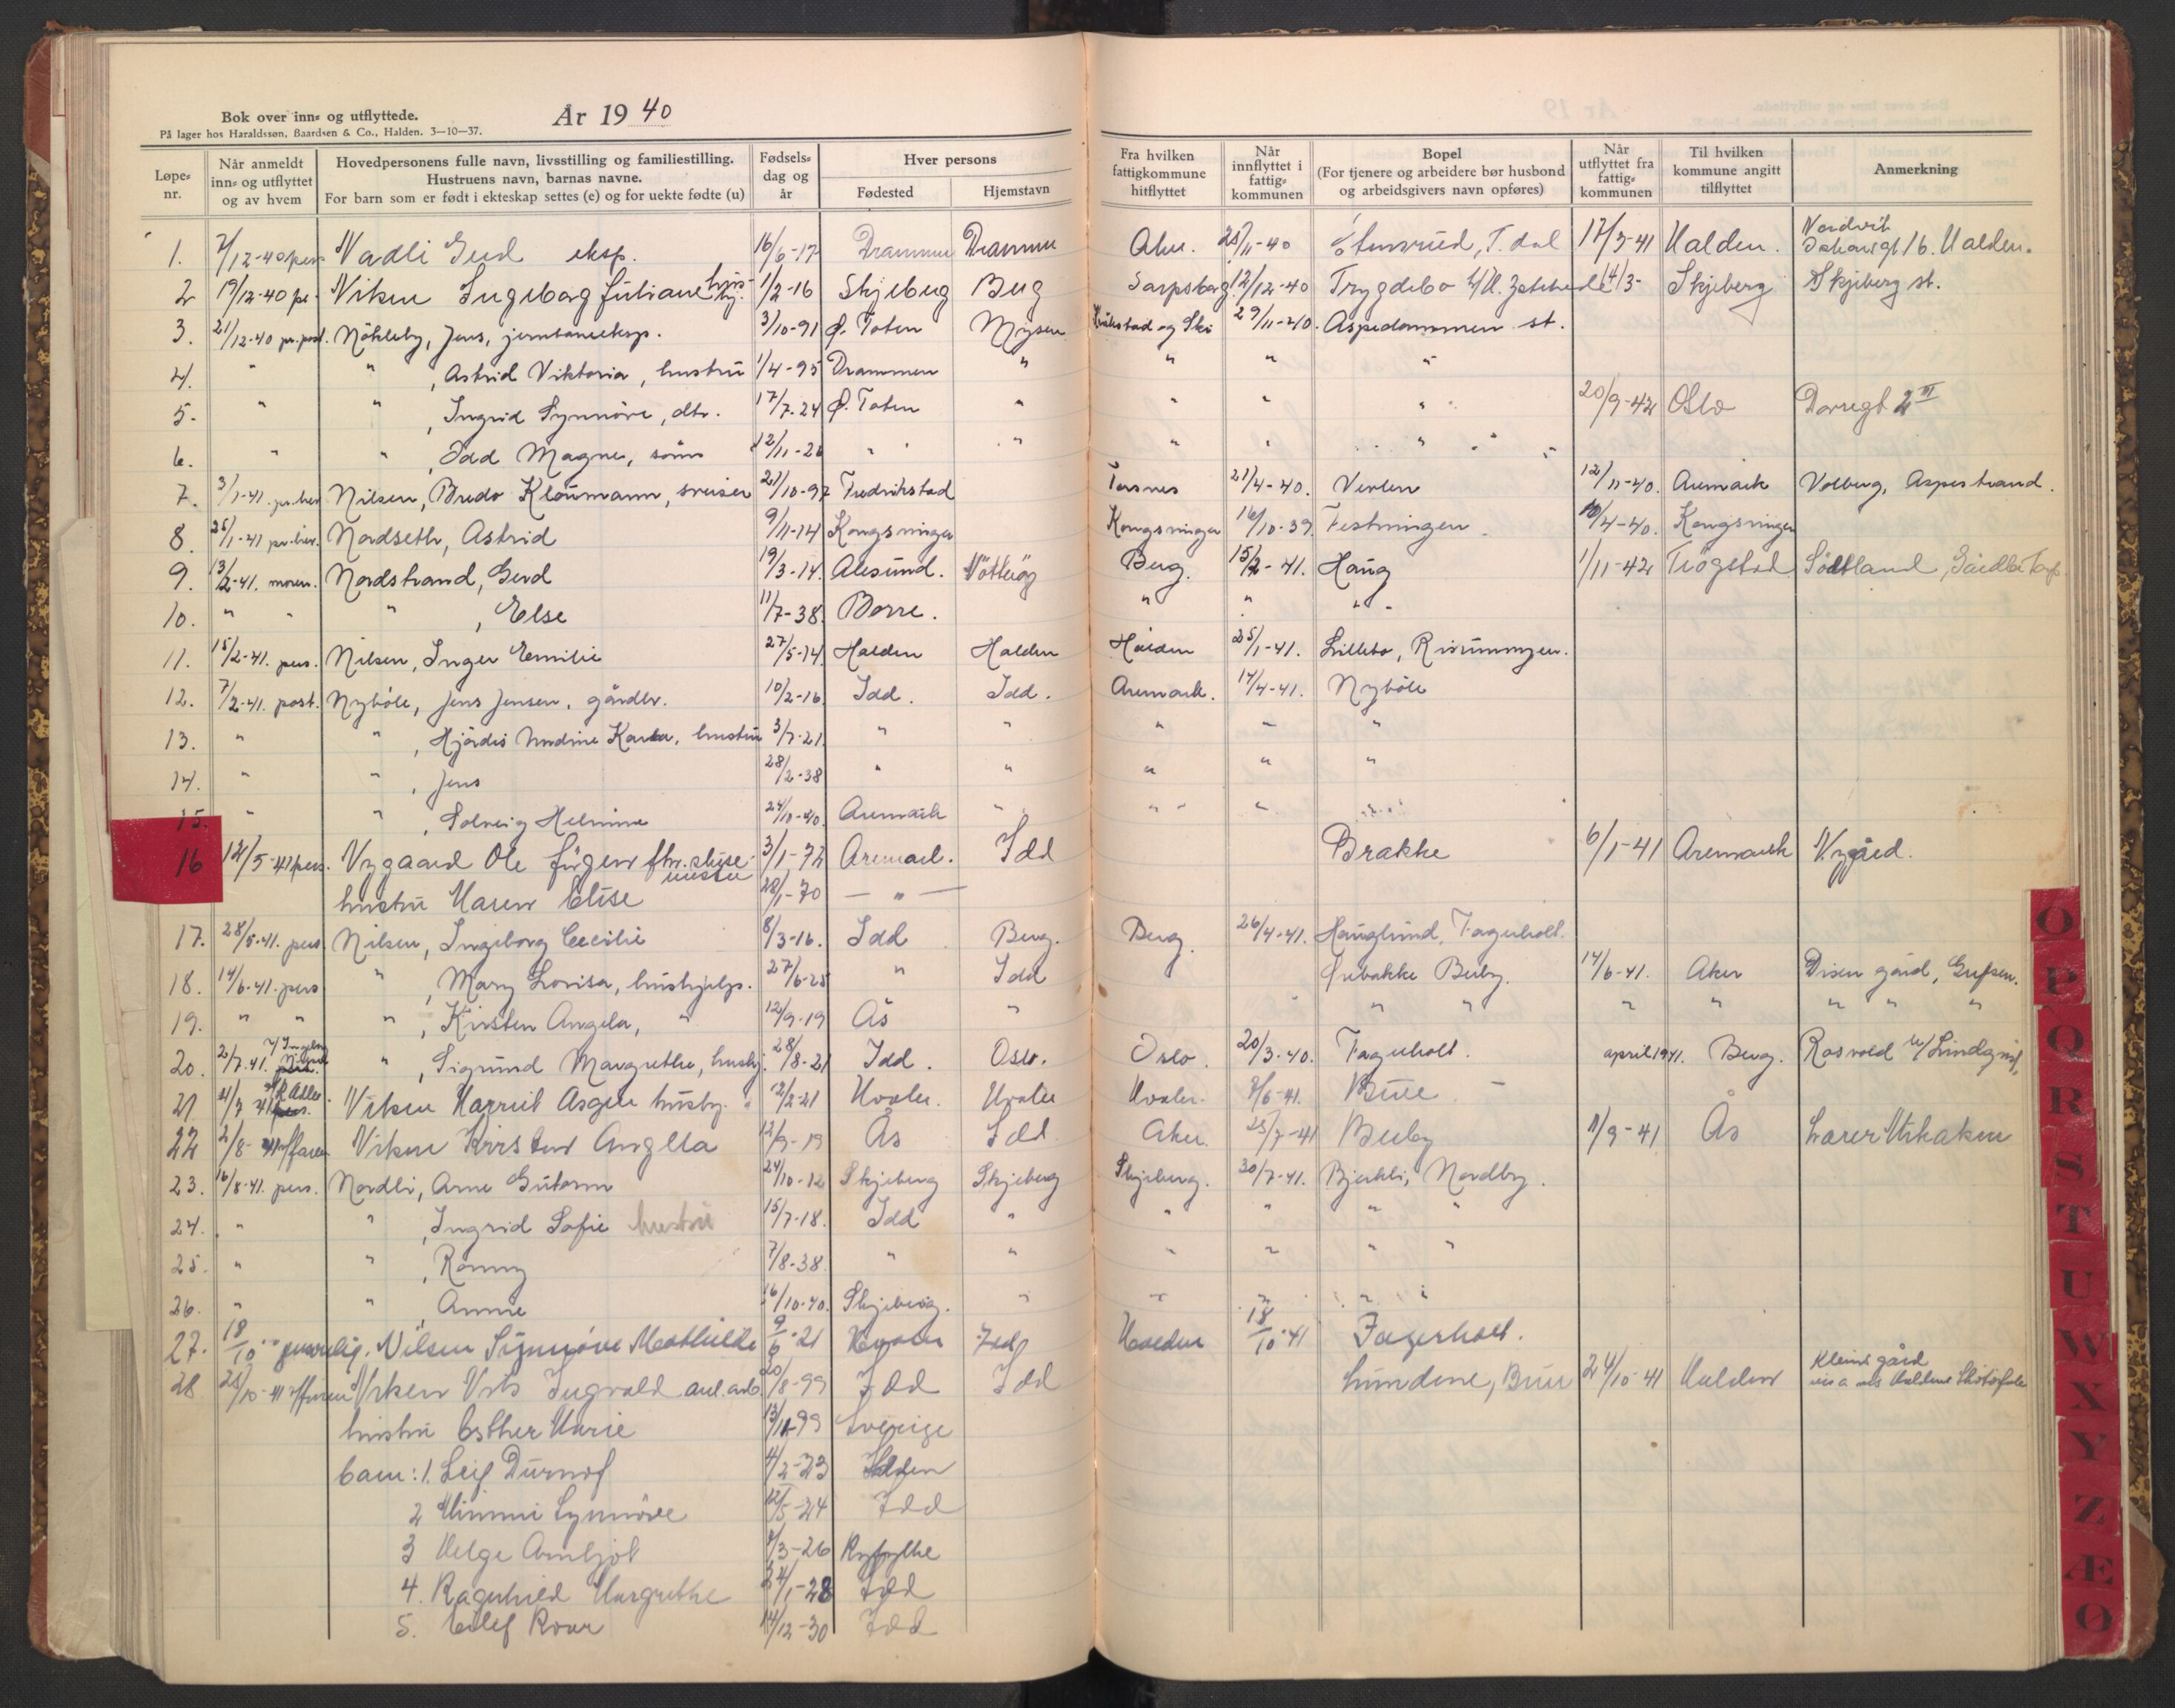 Bok over inn- og utflyttede.
På lager hos Haraldssøn, Baardsen & Co., Halden. 3—10—37.
År 19 40
Løpe-nr. Når anmeldt inn- og utflyttet og av hvem Hovedpersonens fulle navn, livsstilling og familiestilling. Hustruens navn, barnas navne. For barn som er født i ekteskap settes (e) og for uekte fødte (u) Fødsels-dag og år Hver persons Fødested Hjemstavn Fra hvilken fattigkommune hitflyttet Når innflyttet i fattig-kommunen Bopel (For tjenere og arbeidere bør husbond og arbeidsgivers navn opføres) Når utflyttet fra fattig-kommunen Til hvilken kommune angitt tilflyttet Anmerkning
1. 7/12-40 pers Nadli Gerd eksp. 16/6-17 Drammen Drammen Aker. 25/11-40 Stensrud, T.dal 17/3-41 Halden. Nordvik 16. Halden.
2 19/12-40 pr. Niken Ingeborg Juliane 1/2-16 Skjeberg Berg Sarpsborg 12/12-40 Trygdebo 14/3- Skjeberg Skjeberg st.
3. 21/12-40 pr. post. Nökleby, Jens, jernbaneeksp. 3/10-91 Ø. Toten Mysen Kråkstad og Ski 29/11-40. Aspedammen st.
4. " " , Astrid Viktoria, hustru 1/4-95 Drammen " " " "
5. " " , Ingrid Synnöve, dtr. 17/7-24 Ø. Toten " " " " 20/9-42 Oslo Dovregt 2 III
6. " " , Odd Magne, sönn 12/11-26 " " " " "
7. 3/1-41. pr. brev Nilsen, Bredo Kloumann, sveiser 21/10-97 Fredrikstad Torsnes 21/4-40. Veden 12/11-40. Aremark Volberg, Aspestrand.
8. 25/1-41 pr. brev. Nordseth, Astrid 9/11-14 Kongsvinger Kongsvinger 16/10-39 Festningen 10/4-40. Kongsvinger
9. 13/2-41. moren. Nordstrand, Gerd 19/3-14. Ålesund. Nötteröy Berg. 15/2-41. Haug 1/11-42 Trögstad Södtland,
10. " " " , Else 11/7-38. Borre. " " " "
11. 15/2-41. pers. Nilsen, Inger Emilie 27/5-14. Halden Halden Halden 25/1-41. Lillebo,
12. 7/2-41. post. Nyböle, Jens Jensen, gårdbr. 10/2-16. Idd. Idd. Aremark. 14/4-41. Nyböle
13. " " , Hjördis Karla, hustru 3/7-21. " " " " "
14. " " , Jens 28/2-38 " " " " "
15. " " , Solveig Helmine 24/10-40. Aremark " " " "
16 12/5-41 pers. Nygaard Ole Jörgen fhv. sluse- mester 3/1-72 Aremark. Idd Brakke 6/1-41 Aremark Nygård.
hustru Maren Elise 28/1-70 — " —
17. 28/5-41. pers. Nilsen, Ingeborg Cecilie 8/3-16. Idd Berg. Berg. 26/4-41. Hauglund, Fagerholt.
18. 14/6-41. pers " , Mary Lovisa, hushjelp. 27/6-25 " Idd Örebakke Berby. 14/6-41. Aker Disen gård, Grefsen.
19. " " " , Kirsten Angela, " 12/9-19 Ås " " " " " " " "
20. 2/7-41. " , Sigrund Margrethe, hushj. 28/8-21 Idd. Oslo. Oslo. 20/3-40. Fagerholt. april 1941. Berg. Rosvold v/ Lindqvist,
21 Niken Harriet Asgun hushj. 2/2-21 Hvaler. Hvaler Hvaler. 2/6-41. Buer
22 2/8-41 v/faren Niken Kirsten Angella 12/9-19 Ås Idd Aker. 25/7-41 Berby 1/9-41 Ås Lærer
23. 16/8-41. pers. Nordli, Arne Gutorm 24/10-12 Skjeberg Skjeberg Skjeberg. 30/7-41. Bjerkli, Nordby.
24. " " , Ingrid Sofie hustru 15/7-18. Idd " " " " "
25. " " , Ronny 7/8-38. " " " " " "
26. " " , Anne 16/10-40. Skjeberg. " " " "
27. 18/10 personlig. Nilsen Synnöve Mathilde 9/6-21 Hvaler Idd Halden 18/10-41 Fagerholt.
28 25/10-41 v/fruen Niken Nils Ingvald anl. arb. 20/8-99 Idd Idd Lundene, Buer 24/10-41 Halden Kleins gård vis a vis Haldens Skotöifabr.
hustru Esther Marie 13/11-99 Sverige
barn: 1. Leif 4/2-23 Halden
2 Mimmi Synnöve 12/5-24 Idd
3 Helge Arnljot 7/3-26
4. Ragnhild Margrethe 24/1-28 Idd
5. Eilef Roar 14/12-30 Idd
O
P
Q
R
S
T
U
W
X
Y
Z
Æ
Ø